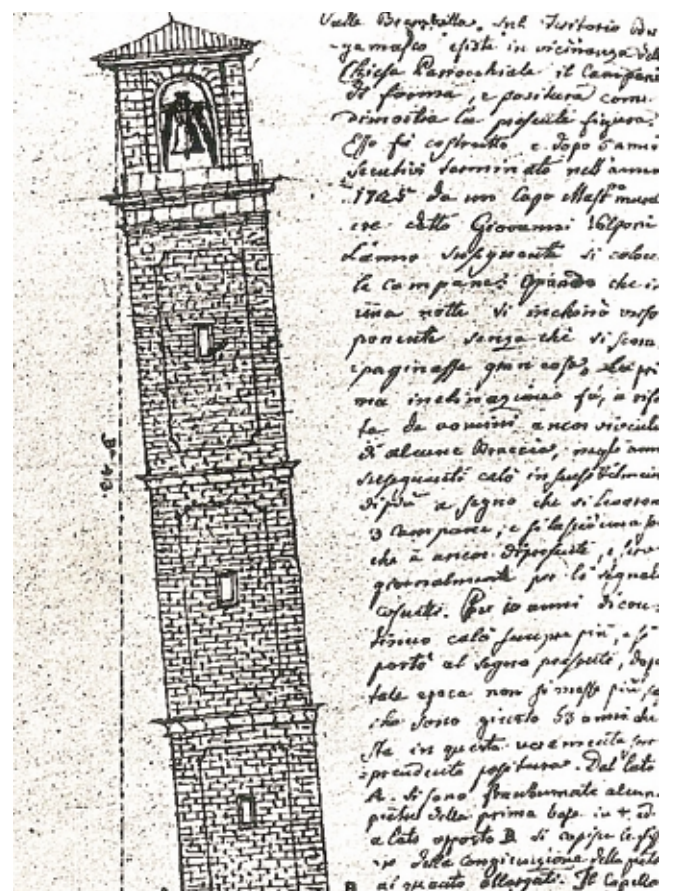 Valle Brembilla, sul Teritorio Ber
gamasco esiste in vicinanza della
Chiesa Parrocchiale il Campani
di forma, e positura come
dimostra la presente figura.
Esso fù costrutto, e dopo 6 anni
secutivi terminato nell'anno
1725 da un Capo Mast.º mura
re detto Giovanni
L'anno susseguente si coloc
le campane: Quando che in
una notte si inchinò verso
ponente senza che si scom
paginasse gran cosa. La pri
ma inclinazione fù, a rife
ta de uomini ancor
di alcune Braccia, negli ann
susseguenti calò insensibilmen
di più a segno che si levaron
3 campane, e si lasciò una so
che è ancor presente, e
giornalmente per li segnali
consueti. Per 10 anni di con
tinuo calò sempre più, e si
portò al segno presente, dopo
tale epoca non si mosse più
che sono giusto 53 anni che
sta in questa veramente sor
prendente positura. Dal lato
A. si sono frantumate alcune
pietre della prima base in 4. ed
a lato opposto B si capisce
della congiunzione delle piet
al quanto allargate. Il Capello
B